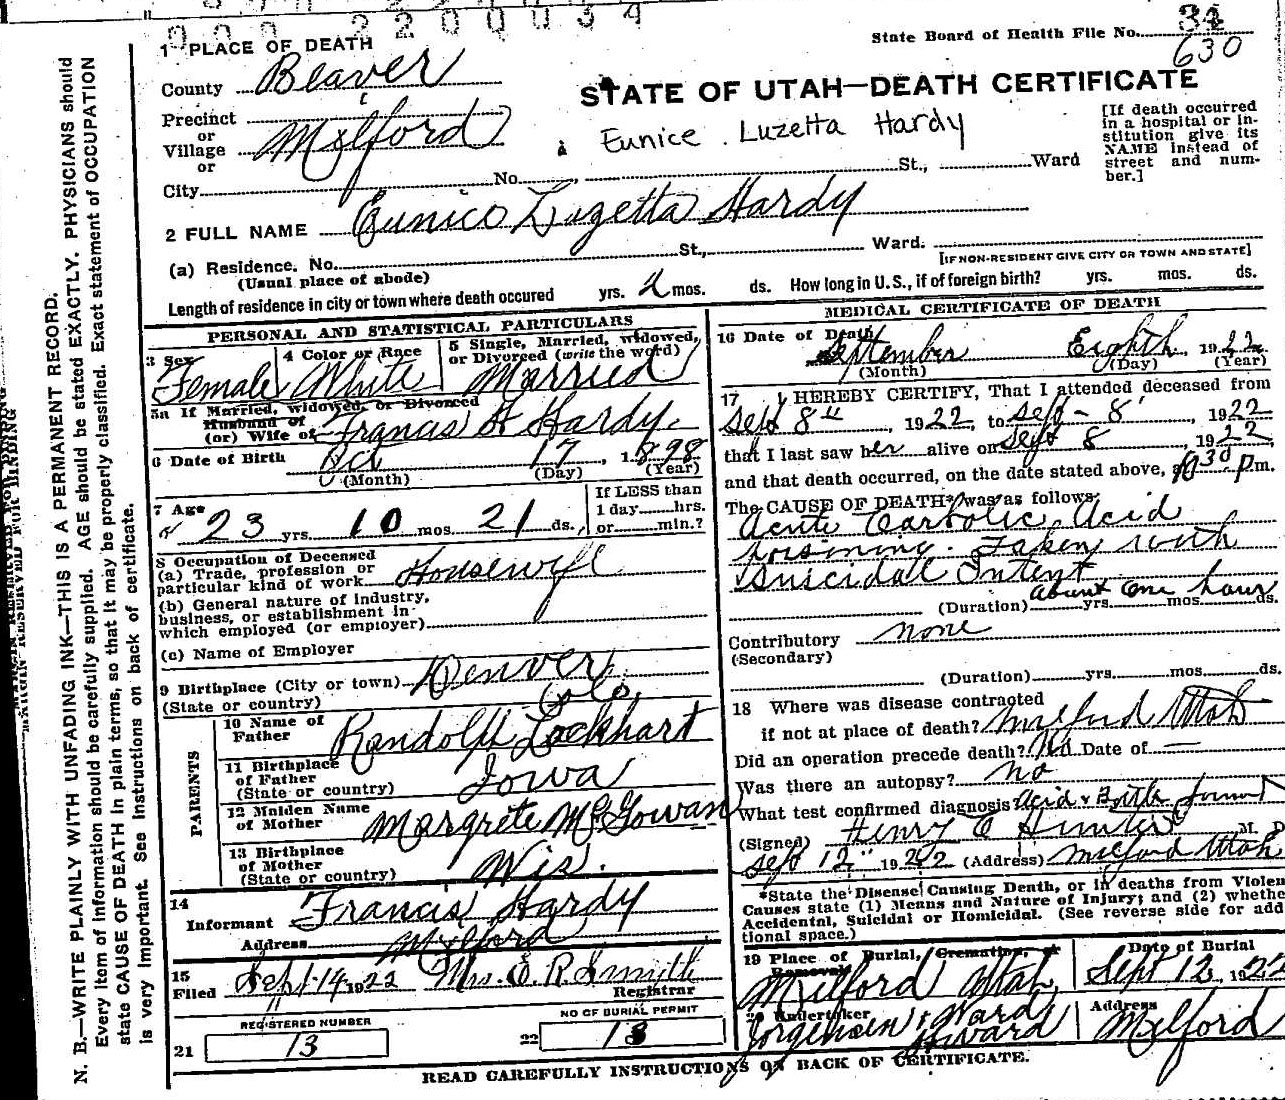 State Board of Health File No. 34
630
1 PLACE OF DEATH
County Beaver
STATE OF UTAH—DEATH CERTIFICATE
Precinct
or
Village Milford
or
Eunice Luzetta Hardy
[If death occurred
in a hospital or in-
stitution give its
NAME instead of
street and num-
ber.]
City No. St., Ward
2 FULL NAME Eunice Luzetta Hardy
(a) Residence. No. St., Ward.
(Usual place of abode) [IF NON-RESIDENT GIVE CITY OR TOWN AND STATE]
Length of residence in city or town where death occured yrs. mos. ds. How long in U.S., if of foreign birth? yrs. mos. ds.
PERSONAL AND STATISTICAL PARTICULARS
3 Sex Female
4 Color or Race White
5 Single, Married, Widowed,
or Divorced (write the word)
Married
5a If Married, widowed, or Divorced
Husband of
(or) Wife of Francis H Hardy.
6 Date of Birth Oct 17, 1898
(Month) (Day) (Year)
7 Age 23 yrs 10 mos 21 ds.,
If LESS than
1 day hrs.
or min.?
8 Occupation of Deceased
(a) Trade, profession or
particular kind of work Housewife
(b) General nature of industry,
business, or establishment in
which employed (or employer)
(c) Name of Employer
9 Birthplace (City or town) Denver,
(State or country) Colo.
PARENTS
10 Name of
Father Randolph Lockhart
11 Birthplace
of Father
(State or country) Iowa
12 Maiden Name
of Mother Margrete McGowan
13 Birthplace
of Mother
(State or country) Wis.
14
Informant Francis Hardy
Address Milford
15
Filed Sept. 14 1922 Mrs. E. R. Smith
Registrar
REGISTERED NUMBER
21 13
NO OF BURIAL PERMIT
22 13
MEDICAL CERTIFICATE OF DEATH
16 Date of Death
September Eighth, 1922
(Month) (Day) (Year)
17 I HEREBY CERTIFY, That I attended deceased from
Sept 8th, 1922, to Sept - 8, 1922
that I last saw her alive on Sept 8, 1922,
and that death occurred, on the date stated above, at 30 pm.
The CAUSE OF DEATH* was as follows:
Acute Carbolic Acid
poisoning. Taken with
Suicidal Intent
about one hour
(Duration) yrs. mos. ds.
Contributory none
(Secondary)
(Duration) yrs. mos. ds.
18 Where was disease contracted
if not at place of death? Milford Utah
Did an operation precede death? No Date of —
Was there an autopsy? no
What test confirmed diagnosis Acid & Bottle found
(Signed) Henry Hunter M. D
Sept 12" 1922 (Address) Milford Utah
*State the Disease Causing Death, or in deaths from Violen
Causes state (1) Means and Nature of Injury; and (2) whethe
Accidental, Suicidal or Homicidal. (See reverse side for add
tional space.)
19 Place of Burial, Cremation,
Removal
Milford Utah,
Date of Burial
Sept 12, 1922
Undertaker
Jorgensen & Ward
Address
Milford
READ CAREFULLY INSTRUCTIONS ON BACK OF CERTIFICATE.
N. B.—WRITE PLAINLY WITH UNFADING INK—THIS IS A PERMANENT RECORD.
Every item of information should be carefully supplied. AGE should be stated EXACTLY. PHYSICIANS should
state CAUSE OF DEATH in plain terms, so that it may be properly classified. Exact statement of OCCUPATION
is very important. See instructions on back of certificate.